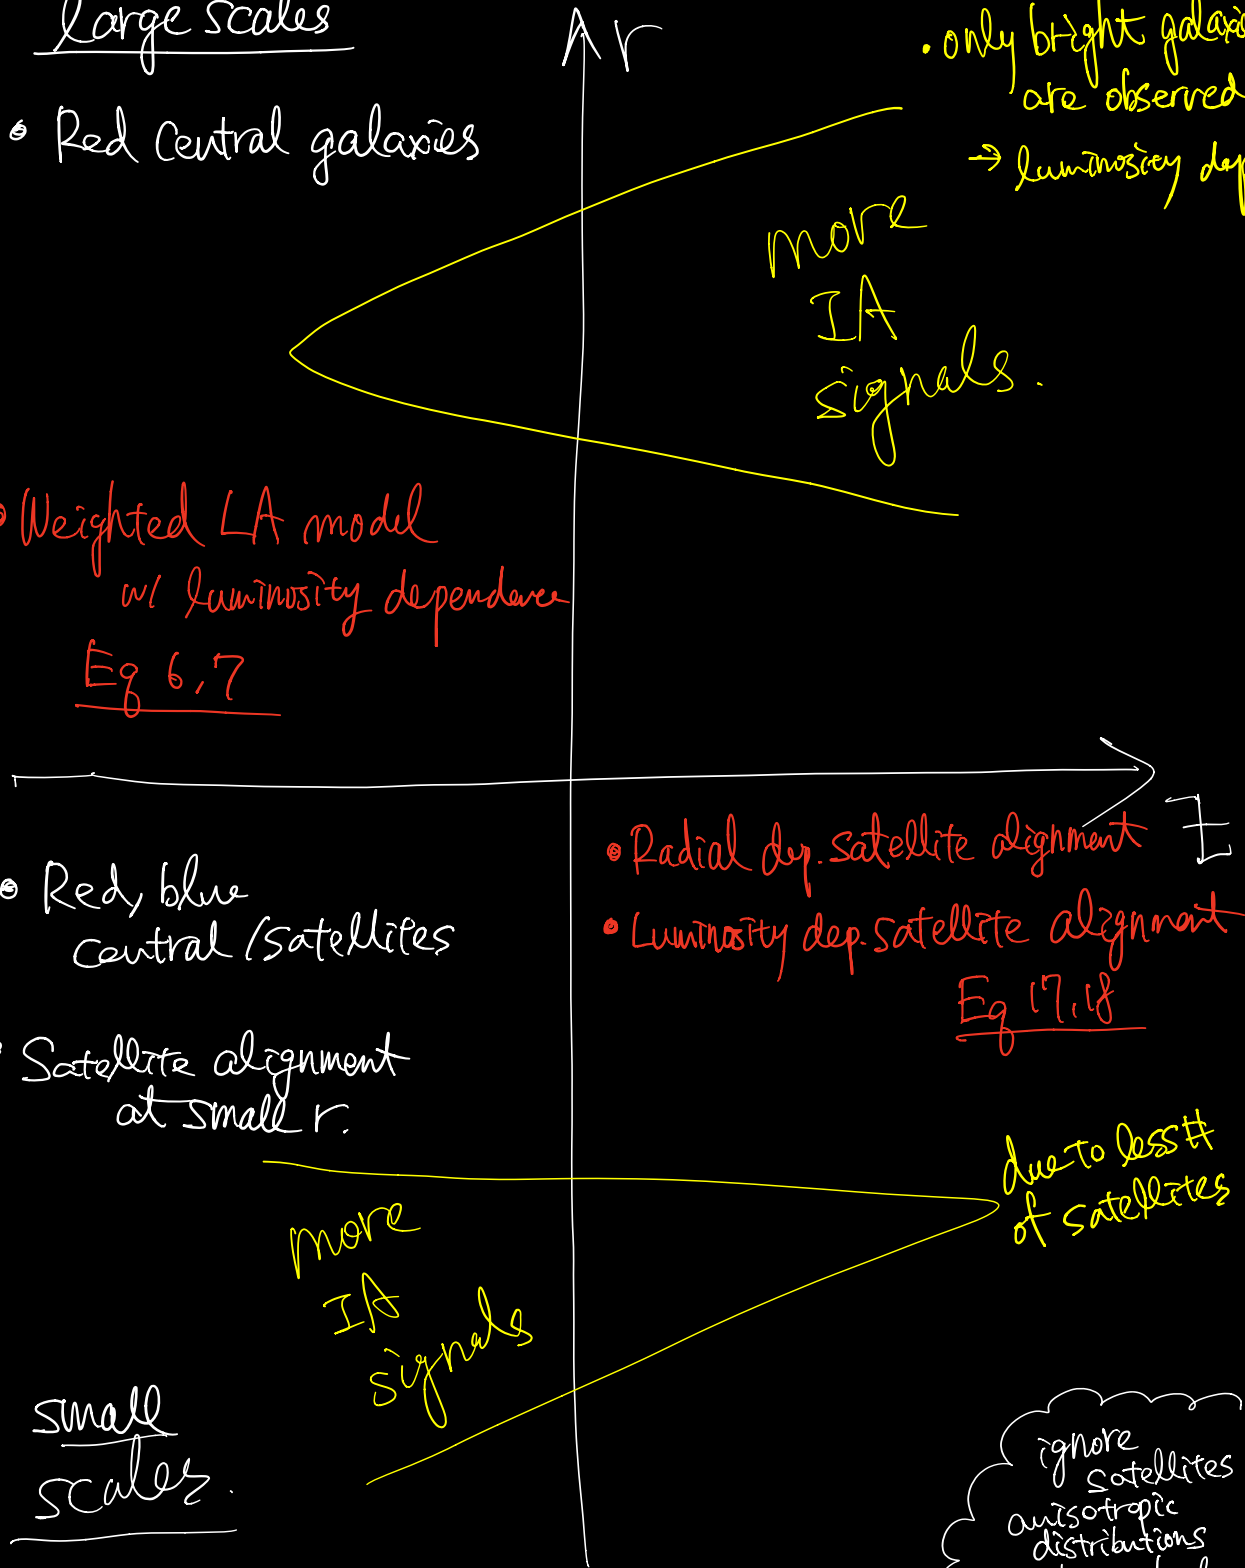 large scales
r
• only bright galaxie
are observed
→ luminosity dep
• Red central galaxies
more
IA
signals.
• Weighted LA model
w/ luminosity dependence
Eq 6,7
z
• Radial dep. satellite alignment
• Luminosity dep. satellite alignment
Eq 17,18
• Red, blue
central/satellites
• Satellite alignment
at small r.
due to less #
of satellites
more
IA
signals
small
scales.
ignore
satellites
anisotropic
distributions